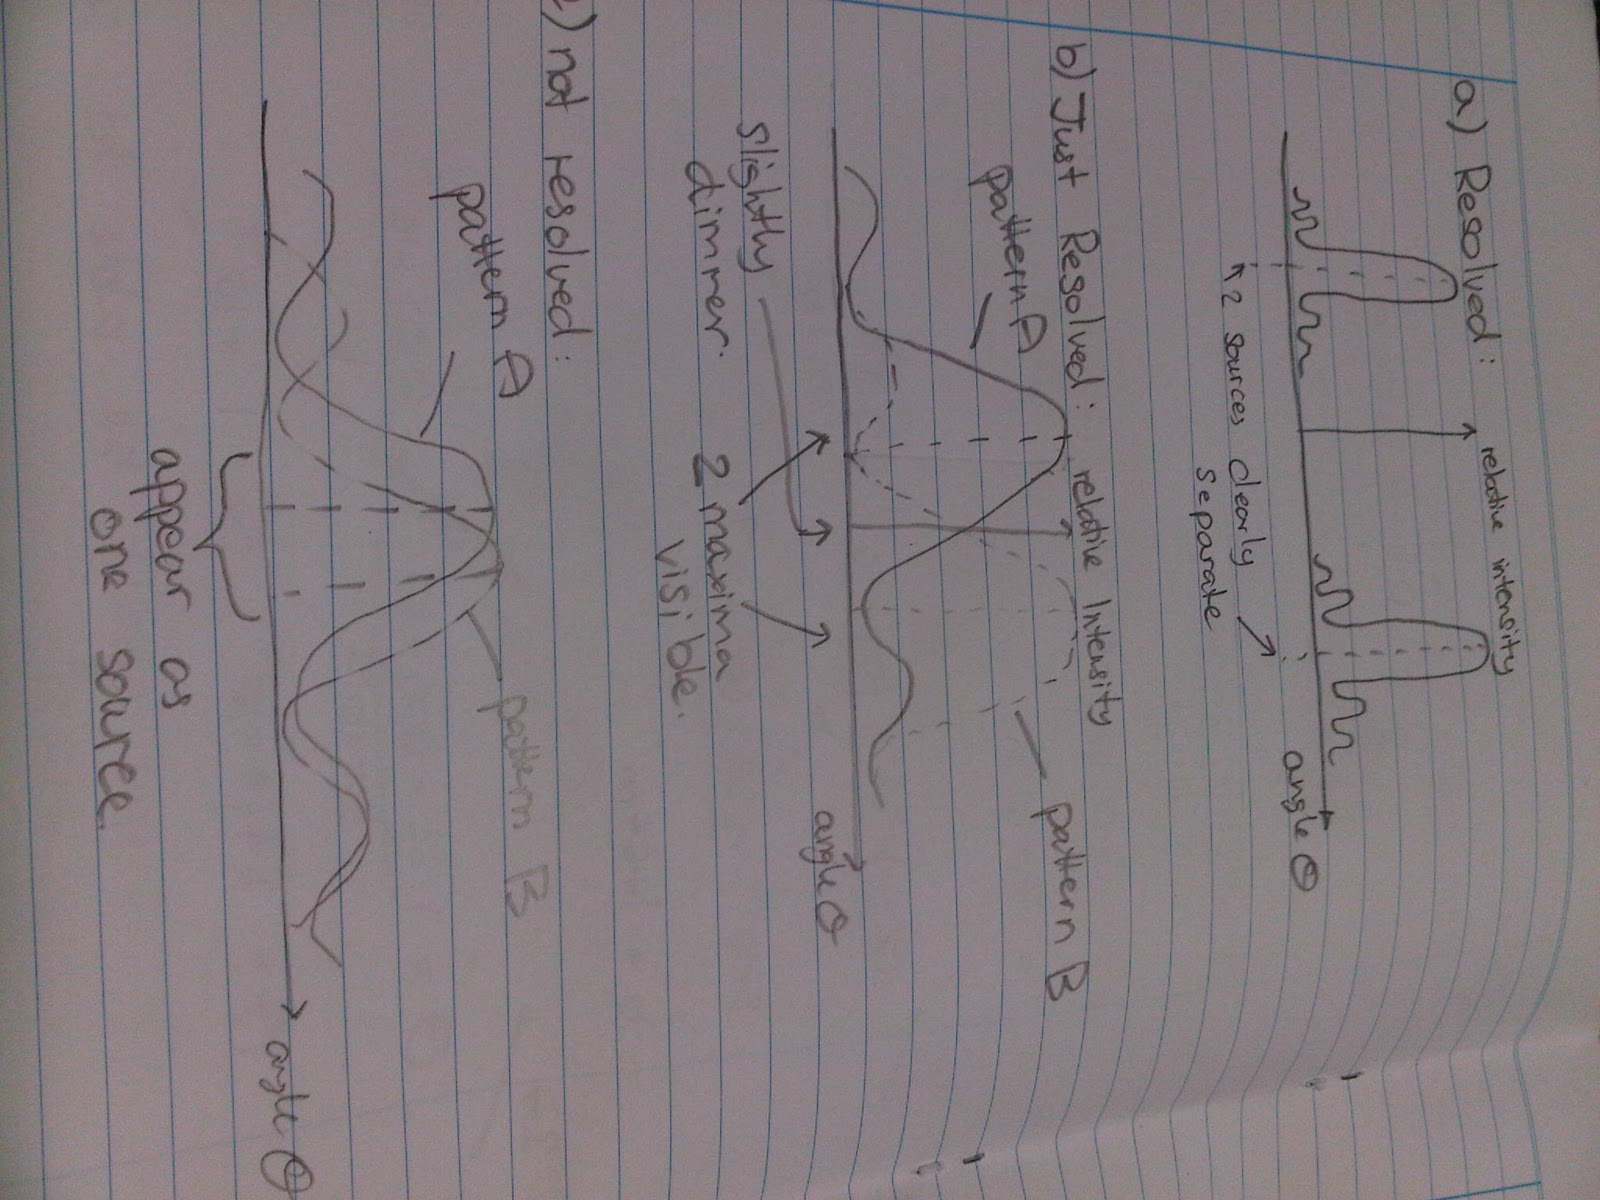 a) Resolved:
relative intensity
angle θ
2 sources clearly
separate
b) Just Resolved:
relative Intensity
pattern A
pattern B
angle θ
slightly
dimmer.
2 maxima
visible.
c) not resolved:
pattern A
pattern B
angle θ
appear as
one source.